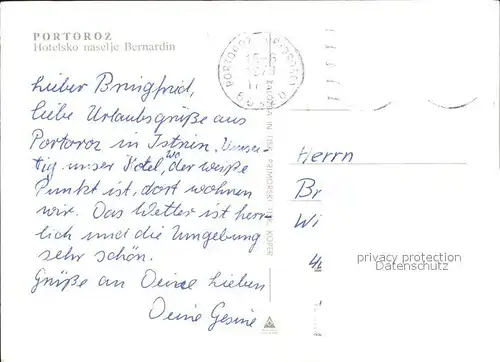 PORTOROZ
Hotelsko naselje Bernardin
Lieber Bringfried,
liebe Urlaubsgrüße aus
Portoroz in Istrien.
unser Hotel, wo der weiße
Punkt ist, dort wohnen
wir. Das Wetter ist herr-
lich und die Umgebung
sehr schön.
Grüße an Deine Lieben
Deine Gesine
PORTOROŽ
Herrn
Br
Wi
privacy protection
Datenschutz